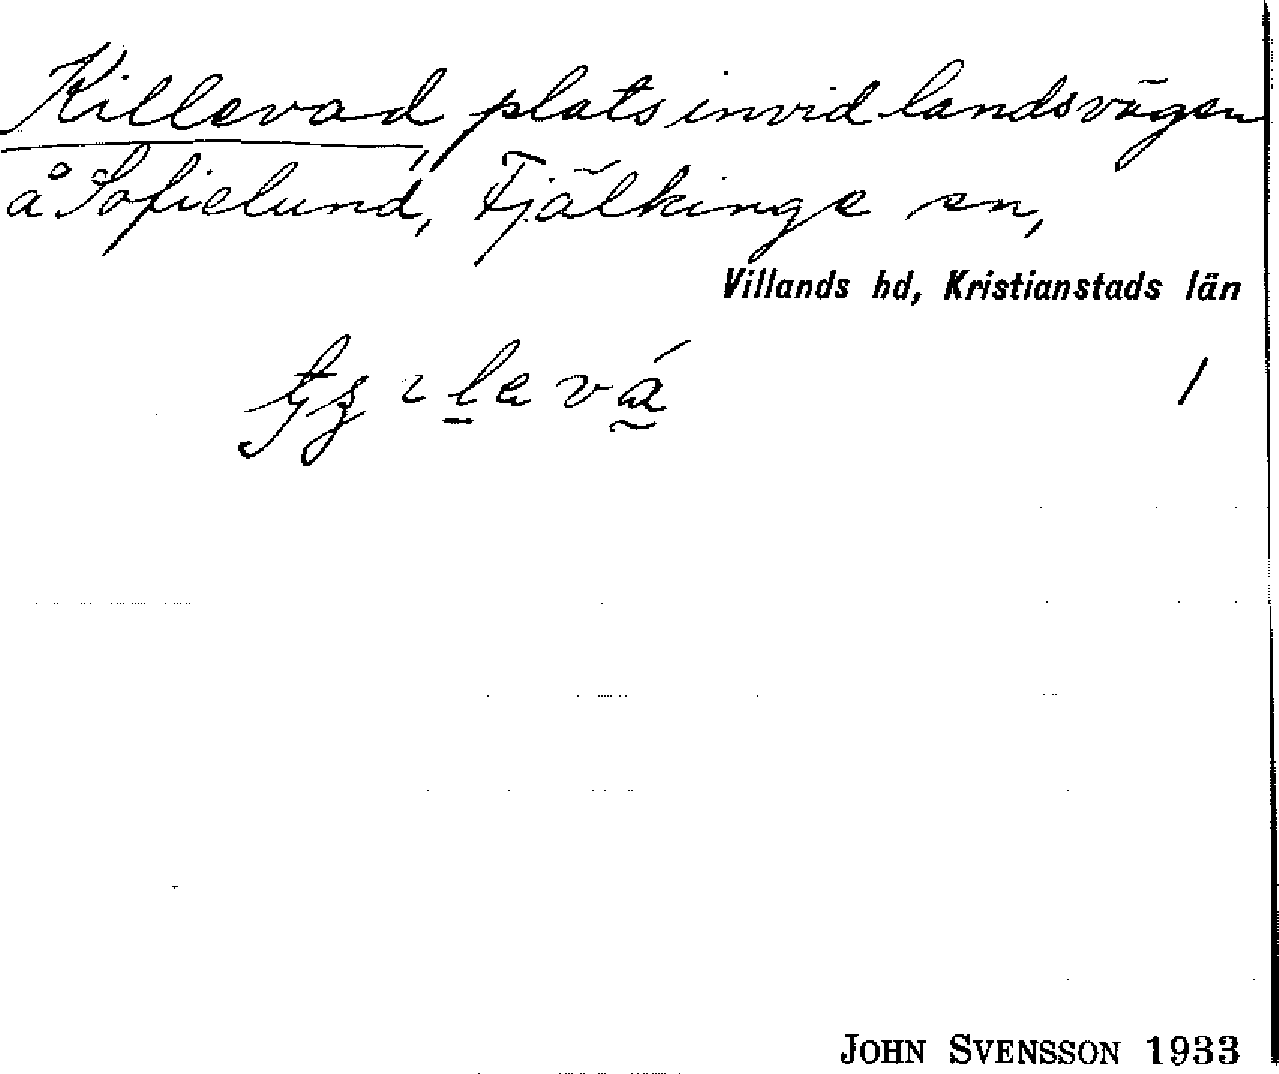 Killevad, plats invid landsvägen
å Sofielund, Fjälkinge sn,
Villands hd, Kristianstads län
1
JOHN SVENSSON 1933